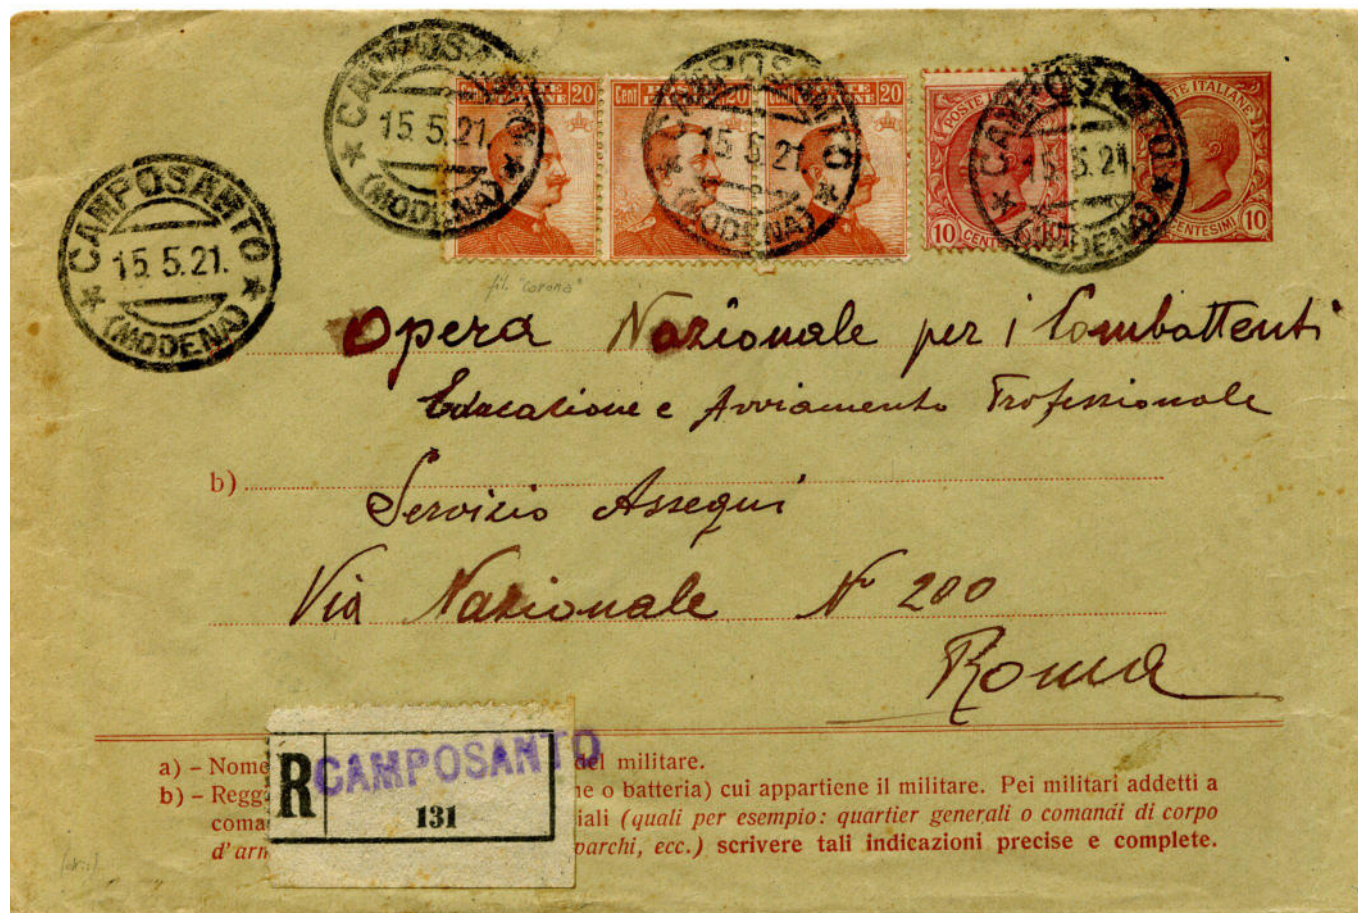 CAMPOSANTO
15.5.21.
(MODENA)
CAMPOSANTO
15.5.21.
(MODENA)
CAMPOSANTO
15.5.21.
(MODENA)
CAMPOSANTO
15.5.21.
(MODENA)
20
Cent 20
20
POSTE
10 CENT 10
POSTE ITALIANE
CENTESIMI 10
fil. "corona"
Opera Nazionale per i Combattenti
Educazione e Avviamento Professionale
b)
Servizio Assegni
Via Nazionale N° 200
Roma
R CAMPOSANTO
131
a) – Nome del militare.
b) – Regg e o batteria) cui appartiene il militare. Pei militari addetti a
coma iali (quali per esempio: quartier generali o comandi di corpo
d'arm parchi, ecc.) scrivere tali indicazioni precise e complete.